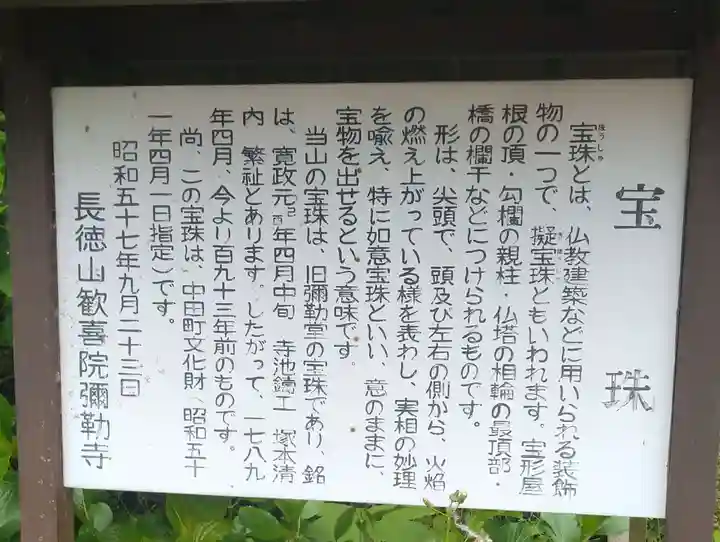 宝珠
宝珠とは、仏教建築などに用いられる装飾
物の一つで、擬宝珠ともいわれます。宝形屋
根の頂・勾欄の親柱・仏塔の相輪の最頂部・
橋の欄干などにつけられるものです。
形は、尖頭で、頭及び左右の側から、火焔
の燃え上がっている様を表わし、実相の妙理
を喩え、特に如意宝珠といい、意のままに、
宝物を出せるという意味です。
当山の宝珠は、旧彌勒堂の宝珠であり、銘
は、寛政元己酉年四月中旬 寺池鋳工 塚本清
内 繁祉とあります。したがって、一七八九
年四月、今より百九十三年前のものです。
尚、この宝珠は、中田町文化財（昭和五十
一年四月一日指定）です。
昭和五十七年九月二十三日
長徳山歓喜院彌勒寺